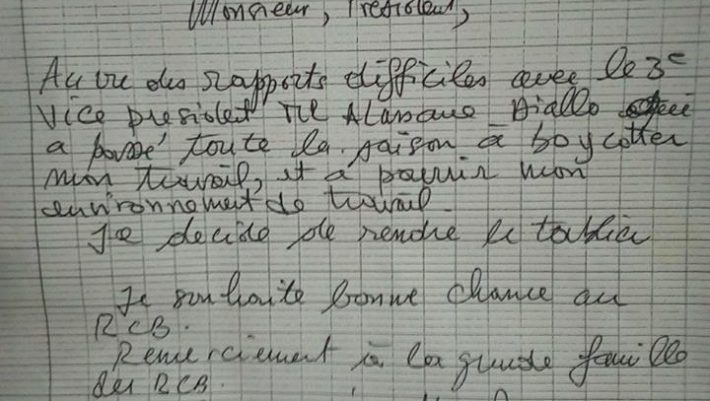 Monsieur, President,
Au vu des rapports difficiles avec le 3e
Vice president Mr Alassane Diallo qui
a passé toute la saison à boycotter
mon travail, et à pourrir mon
environnement de travail.
Je decide de rendre le tablier
Je souhaite bonne chance au
RCB.
Remerciement à la grande famille
du RCB.